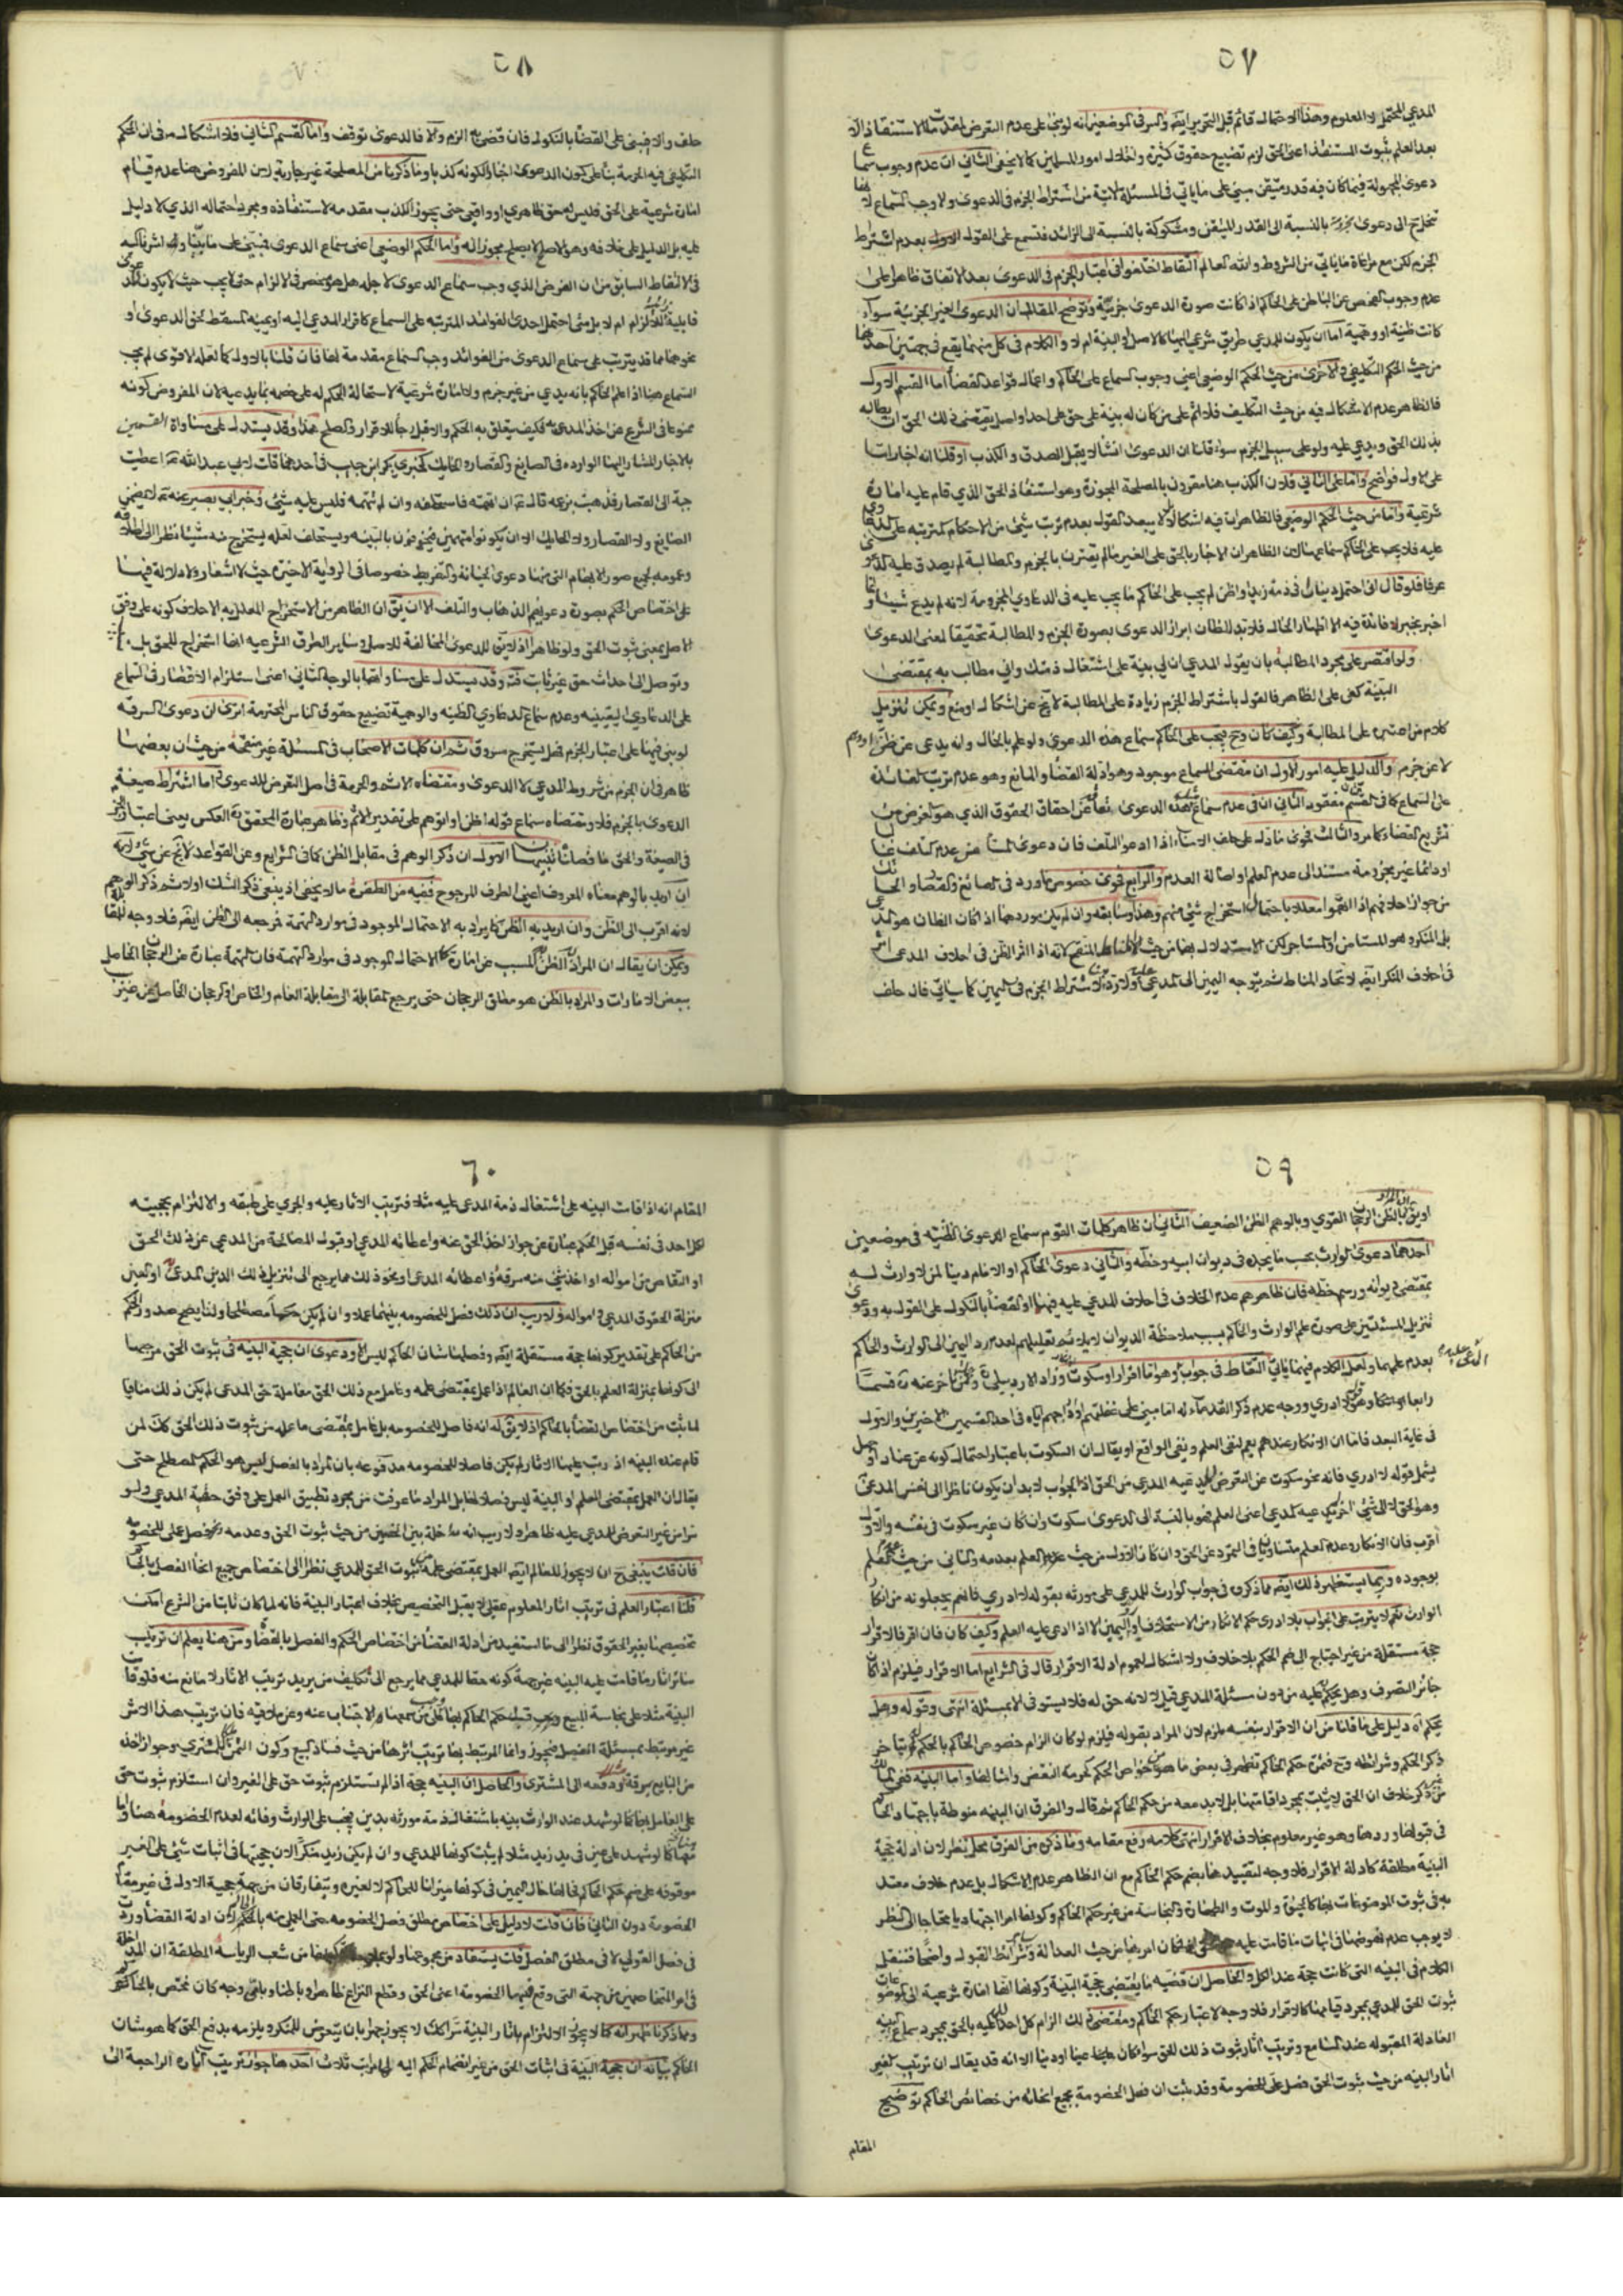 ٥٧
المدعي المحتمل لا المعلوم وهذا الاحتمال قائم قبل التحرير ايضا والسر في الموضعين انه لو بنى على عدم التعرض
بعد العلم بثبوت المستنقذ اعني الحق لزم تضييع حقوق كثيرة واختلال امور المسلمين كما لا يخفى الثاني ان عدم وجوب سماع
دعوى المجهولة فيما كان فيه قدر متيقن مبني على ما ياتي في المسئلة الاتية من اشتراط الجزم في الدعوى والا وجب السماع
الى دعوى بالنسبة الى القدر المتيقن ومشكوكة بالنسبة الى الزائد فتسمع على القول بعدم اشتراط
الجزم لكن مع مراعاة ما ياتي من الشروط والله العالم التقاط اختلفوا في اعتبار الجزم في الدعوى بعد الاتفاق ظاهرا على
عدم وجوب الفحص عن الباطن على الحاكم اذا كانت صورة الدعوى جزمية وتوضيح المقال ان الدعوى الغير الجزمية سواء
كانت ظنية او وهمية اما ان يكون للمدعي طريق شرعي اليها كالاصل والبينة ام لا والكلام في كل منهما يقع في جهتين احدهما
من حيث الحكم التكليفي والاخرى من حيث الحكم الوضعي اعني وجوب السماع على الحاكم واعمال قواعد القضا اما القسم الاول
فالظاهر عدم الاشكال فيه من حيث التكليف فلا اثم على من كان له بينة على حق على احد او اصل يقتضي ذلك الحق ان يطالبه
بذلك الحق ويدعي عليه ولو على سبيل الجزم سواء قلنا ان الدعوى انشاء لا يقبل الصدق والكذب او قلنا انه اخبار اما
على الاول فواضح واما على الثاني فلان الكذب هنا مقرون بالمصلحة المجوزة وهو استنقاذ الحق الذي قام عليه امارة
شرعية واما من حيث الحكم الوضعي فالظاهر ان فيه اشكالا لا يبعد القول بعدم ترتب شيئ من الاحكام المترتبة على الدعوى
عليه فلا يجب على الحاكم سماعها لان الظاهر ان الاخبار بالحق على الغير ما لم يقترن بالجزم والمطالبة لم يصدق عليه الدعوى
عرفا فلو قال اني احتمل دينارا في ذمة زيد او اظن لم يجب على الحاكم ما يجب عليه في الدعاوي المجزومة لانه لم يدع شيئا وانما
اخبر بخبر لا فائدة فيه الا اظهار الحال فلا بد للظان ابراز الدعوى بصورة الجزم والمطالبة تحقيقا لمعنى الدعوى
ولو اقتصر على مجرد المطالبة بان يقول المدعي ان لي بينة على اشتغال ذمتك واني مطالب به بمقتضى
البينة كفى على الظاهر فالقول باشتراط الجزم زيادة على المطالبة لا يخ عن اشكال او منع ويمكن تنزيل
كلام من اعتبره على المطالبة وكيف كان وح يجب على الحاكم سماع هذه الدعوى ولو علم بالحال وانه يدعي عن ظن او وهم
لا عن جزم والدليل عليه امور الاول ان مقتضى السماع موجود وهو ادلة القضا والمانع وهو عدم ترتب الفائدة
على السماع كما في القسم الثاني مفقود الثاني ان في عدم سماع هذه الدعوى عن احقاق الحقوق الذي هو الغرض من
تشريع القضاء كما مر الثالث فحوى ما دل على حلف الامناء اذا ادعوا التلف فان دعوى المستامن عدم التلف غالبا
او دائما غير مجزومة مستندا الى عدم العلم او اصالة العدم والرابع فحوى خصوص ما ورد في الصائغ والقصار والحائك
من جواز احلافهم اذا اتهموا معللا باحتمال استخراج شيئ منهم وهذا وسابقه وان لم يكن موردهما اذا كان الظان هو المدعي
بل المنكر وهو المستامن او المستاجر لكن الاستدلال بهما من حيث المناط المنقح لانه اذا اثر الظن في احلاف المدعي اثر
في احلاف المنكر ايضا لاتحاد المناط ثم يتوجه اليمين الى المدعي عليه ولا ترد لاشتراط الجزم في اليمين كما سياتي فان حلف
٥٨
حلف والا فيبنى على القضا بالنكول فان قضى به الزم والا فالدعوى توقف واما القسم الثاني فلا اشكال في ان الحكم
التكليفي فيه الحرمة بناء على كون الدعوى اخبارا لكونه كذبا وما ذكرنا من المصلحة غير جارية لان المفروض هنا عدم قيام
امارة شرعية على الحق فليس له حق ظاهري او واقعي حتى يجوز الكذب مقدمة لاستنقاذه ومجرد احتماله الذي لا دليل
عليه بل الدليل على خلافه وهو الاصل لا يصلح مجوزا له واما الحكم الوضعي اعني سماع الدعوى فيبنى على ما بينا واشرنا اليه
في الالتقاط السابق من ان الغرض الذي وجب سماع الدعوى لاجله هل هو منحصر في الالزام حتى لا يجب حيث لا يكون الدعوى
قابلة للالزام ام لا بل متى احتمل احدى الفوائد المترتبه على السماع كاقرار المدعي اليه او يمينه المسقط لحق الدعوى او
نحوهما مما قد يترتب على سماع الدعوى من الفوائد وجب السماع مقدمة لها فان قلنا بالاول كما لعله الاقوى لم يجب
السماع هنا اذا علم الحاكم بانه يدعي من غير جزم ولا امارة شرعية لاستحالة الحكم له على خصمه بما يدعيه لان المفروض كونه
ممنوعا في الشرع عن اخذ المدعى به فكيف يتعلق به الحكم والا قبل رجاء للاقرار والصلح هذا وقد يستدل على مساواة القسمين
بالاخبار المشار اليها الوارده في الصايغ والقصار والحايك كخبري بكر ابن حبيب في احدهما قلت لابي عبد الله ع اعطيت
جبة الى القصار فذهبت بزعمه قال ع ان اتهمته فاستحلفه وان لم تتهمه فليس عليه شيئ وخبر ابي بصير عنه ع لا يضمن
الصايغ ولا القصار ولا الحايك الا ان يكونوا متهمين فيخوفون بالبينه ويستحلف لعله يستخرج منه شيئا نظرا الى اطلاقه
وعمومه لجميع صور الاتهام التي منها دعوى الخيانة والتفريط خصوصا في الرواية الاخيرة حيث لا اشعار ولا دلالة فيها
على اختصاص الحكم بصورة دعويهم الذهاب والتلف الا ان يق ان الظاهر من الاستخراج المعلل به الاحلاف كونه على وفق
الاصل بمعنى ثبوت الحق ولو ظاهرا اذ لا يق للدعوى المخالفة للاصل وساير الطرق الشرعيه انها استخراج للحق بل
وتوصل الى احداث حق غير ثابت فت وقد يستدل على مساواتهما بالوجه الثاني اعني استلزام الاقتصار في السماع
على الدعاوي اليقينيه وعدم سماع الدعاوي الظنيه والوهمية تضييع حقوق الناس المحترمة اترى ان دعوى السرقه
لو بني فيها على اعتبار الجزم فهل يستخرج مسروق ثم ان كلمات الاصحاب في المسئلة غير منقحة من حيث ان بعضها
ظاهر في ان الجزم من شروط المدعي لا الدعوى ومقتضاه الاثم والحرمة في اصل التعرض للدعوى اما اشتراط صيغة
الدعوى بالجزم فلا ومقتضاه سماع قوله اظن او اتوهم على تقدير الاثم وظاهر عبارة المحقق ره العكس يعني اعتبار الجزم
في الصيغة والحق ما فصلنا تنبيهان الاول ان ذكر الوهم في مقابل الظن كما في الشرايع وعن القواعد لا يخ عن شيئ لانه
ان اريد بالوهم معناه المعروف اعني الطرف المرجوح ففيه من الطفرة ما لا يخفى اذ ينبغي ذكر الشك اولا ثم ذكر الوهم
لانه اقرب الى الظن وان اريد به الظن كما يراد به الاحتمال الموجود في موارد التهمة فمرجعه الى الظن ايضا فلا وجه للمقابلة
ويمكن ان يقال ان المراد بالظن المسبب عن امارة كالاحتمال الموجود في موارد التهمة فان التهمة عبارة عن الرجحان الحاصل
ببعض الامارات والمراد بالظن هو مطلق الرجحان حتى يرجع المقابلة الى مقابلة العام والخاص او الرجحان الحاصل من غير
٥٩
او يق ان المراد بالظن الرجحان القوي وبالوهم الظن الضعيف الثاني ان ظاهر كلمات القوم سماع الدعوى الظنيه في موضعين
احدهما دعوى الوارث بحسب ما يجده في ديوان ابيه وخطه والثاني دعوى الحاكم او الامام دينا لمن لا وارث له
بمقتضى ديوانه ورسم خطه فان ظاهرهم عدم الخلاف في احلاف المدعي عليه فيهما او القضاء بالنكول على القول به ودعوى
تنزيل المسئلتين على صورة علم الوارث والحاكم بسبب ملاحظة الديوان لا يلائم تعليلهم لعدم رد اليمين الى الوارث والحاكم
بعدم علمهما ولعل الكلام فيهما ياتي التقاط في جواب المدعى عليه وهو اما اقرار او انكار او سكوت وزاد الاردبيلي وبعض من تاخر عنه ره قسما
رابعا وهو قوله لا ادري ووجه عدم ذكر القدماء له اما مبني على غفلتهم او ادراجهم اياه في احد القسمين الاخيرين والاول
في غاية البعد فاما ان الانكار عندهم يعم لنفي العلم ونفي الواقع او يقال ان السكوت باعتبار احتمال كونه عن عناد او جهل
يشمل قوله لا ادري فانه نحو سكوت عن التعرض لما يدعيه المدعي من الحق اذ الجواب لا بد ان يكون ناظرا الى نفس المدعى
وهو الحق لا الى شيئ اخر لم يدعيه المدعي اعني العلم فهو بالنسبة الى الدعوى سكوت وان كان غير سكوت في نفسه والاول
اقرب فان الانكار وعدم العلم متساويان في التمرد عن الحق وان كان الاول من حيث العلم بعدمه والثاني من حيث عدم العلم
بوجوده وربما يستظهر ذلك ايضا مما ذكروه في جواب الوارث للمدعي على مورثه بقوله لا ادري فانهم يجعلونه من انكار
الوارث نعم لا يترتب على الجواب بلا ادري حكم الانكار من الاستحلاف واليمين الا اذا ادعى عليه العلم وكيف كان فان اقر فالاقرار
حجة مستقلة من غير احتياج الى ضم الحكم بلا خلاف ولا اشكال لعموم ادلة الاقرار قال في الشرايع اما الاقرار فيلزم اذا كان
جائز التصرف وهل يحكم عليه من دون مسئلة المدعي قيل لا لانه حق له فلا يستوفى الا بمسئلته انتهى وقوله وهل
يحكم اه دليل على ما قلنا من ان الاقرار بنفسه ملزم لان المراد بقوله فيلزم لو كان الزام خصوص الحاكم بالحكم لم يتاخر
ذكر الحكم وشرائطه وح فثمرة حكم الحاكم تظهر في بعض ما هو من خواص الحكم كحرمة النقض وامثالها واما البينه ففي المسالك
من غير ذكر خلاف ان الحق لا يثبت بمجرد اقامتها بل لا بد معه من حكم الحاكم ثم قال والفرق ان البينه منوطة باجتهاد الحاكم
في قبولها وردها وهو غير معلوم بخلاف الاقرار انتهى كلامه رفع مقامه وما ذكره من الفرق محل نظر لان ادلة حجية
البينة مطلقة كادلة الاقرار فلا وجه لتقييدها بضم حكم الحاكم مع ان الظاهر عدم الاشكال بل عدم خلاف معتد
به في ثبوت الموضوعات بها كالحيوة والموت والطهارة والنجاسة من غير حكم الحاكم وكونها امرا اجتهاديا محتاجا الى النظر
لا يوجب عدم نهوضها في اثبات ما قامت عليه اذا كان امرها من حيث العدالة وشرائط القبول واضحا فننقل
الكلام في البينه التي كانت حجة عند الكل والحاصل ان قضية ما يقتضي حجية البينة وكونها انها امارة شرعية الى الموضوعات
ثبوت الحق للمدعي بمجرد قيامها كالاقرار فلا وجه لاعتبار حكم الحاكم ومقتضى ذلك الزام كل احد للمدعى عليه بالحق بمجرد سماع البينه
العادلة المقبوله عند السامع وترتيب اثار ثبوت ذلك الحق سواء كان عينا او دينا الا انه قد يقال ان ترتيب الغير
اثار البينه من حيث ثبوت الحق فصل للخصومة وقد يثبت ان فصل الخصومة بجميع انحائه من خصائص الحاكم توضيح
المقام
٦٠
المقام انه اذا قامت البينه على اشتغال ذمة المدعى عليه مثلا فترتيب الاثار عليه والجري على طبقه والالتزام بحجيته
لكل احد في نفسه قبل الحكم عبارة عن جواز اخذ الحق عنه واعطائه المدعي او قبول المصالحة من المدعي عن ذلك الحق
او التقاص من امواله او اخذ شيئ منه سرقة واعطائه المدعي ونحو ذلك مما يرجع الى تنزيل ذلك الدين المدعى او العين
منزلة الحقوق المدعي او امواله ولا ريب ان ذلك فصل للخصومه بينهما عملا وان لم يكن حكما مصطلحا ولذا يصح صدور الحكم
من الحاكم على تقدير كونها حجة مستقلة ايضا وفصلها شان الحاكم ليس الا ودعوى ان حجية البينه في ثبوت الحق مرجعها
الى كونها بمنزلة العلم بالحق فكما ان العالم اذا عمل بمقتضى علمه وعامل مع ذلك الحق معاملة حق المدعي لم يكن ذلك منافيا
لما ثبت من اختصاص القضاء بالحاكم اذ لا يق له انه فاصل للخصومه بل عامل بمقتضى ما علمه من ثبوت ذلك الحق كك لمن
قام عنده البينه اذ رتب عليها الاثار لم يكن فاصلا للخصومه مدفوعه بان المراد بالفصل ليس هو الحكم المصطلح حتى
يقال ان العمل بمقتضى العلم او البينة ليس فصلا مقابل المراد ما عرفت من مجرد تطبيق العمل على وفق حقية المدعي ولو
سرا من غير التعرض للمدعى عليه ظاهرا ولا ريب انه مداخلة بين الخصمين من حيث ثبوت الحق وعدمه وفصل عملي للخصومه
فان قلت ينبغي ح ان لا يجوز للعالم ايضا العمل بمقتضى علمه من ثبوت الحق للمدعي نظرا الى اختصاص جميع انحاء الفصل بالحاكم
قلنا اعتبار العلم في ترتيب اثار المعلوم عقلي لا يقبل التخصيص بخلاف اعتبار البينة فانه لما كان ثابتا من الشرع امكن
تخصيصها بغير الحقوق نظرا الى ما استفيد من ادلة القضاء من اختصاص الحكم والفصل بالقضاة ومن هنا يعلم ان ترتيب
سائر اثار ما قامت عليه البينه غير جهة كونه حقا للمدعي مما يرجع الى تكليف من يريد ترتيب الاثار لا مانع منه فلو قامت
البينة مثلا على نجاسة المبيع وجب قبل حكم الحاكم بها كل من سمعها والاجتناب عنه وعن ملاقيه فان ترتيب هذا الاثر
غير مرتبط بمسئلة الفصل فيجوز وانما المرتبط بها ترتيب اثرها من حيث فساد البيع وكون الثمن للمشتري وجواز اخذه
من البايع سرقة ودفعه الى المشتري والحاصل ان البينه حجة اذا لم تستلزم ثبوت حق على الغير وان استلزم ثبوت حق
على العامل بها كما لو شهد عند الوارث بينه باشتغال ذمة مورثه بدين يجب على الوارث وفائه لعدم الخصومه هنا واما
كما لو شهد على عين في يد زيد مثلا لم يثبت كونها للمدعي وان لم يكن زيد منكرا لان حجيتها في اثبات شيئ على الغير
موقوفه على ضم حكم الحاكم فحالها حال اليمين في كونها ميزانا للحاكم لا لغيره ويتفارقان من جهة حجية الاول في غير مقام
الخصومة دون الثاني فان قلت لا دليل على اختصاص مطلق فصل الخصومه حتى العملي منه بالحاكم لان ادلة القضاء وردت
في فصل القولي لا في مطلق الفصل قلت يستفاد من مجموعها من شعب الرياسة المطلقة ان المداخلة
في امر المتخاصمين من جهة التي وقع فيها الخصومة اعني الحق وقطع النزاع ظاهرا وباطنا وباي وجه كان مختص بالحاكم
ومما ذكرنا ظهر انه كما لا يجوز الالتزام باثار البينة سرا كك لا يجوز جهرا بان يتعرض للمنكر ويلزمه بدفع الحق كما هو شان
الحاكم بيانه ان حجية البينة في اثبات الحق من غير انضمام الحكم اليه لها مراتب ثلاث احدها جواز ترتيب اثاره الراجعة الى